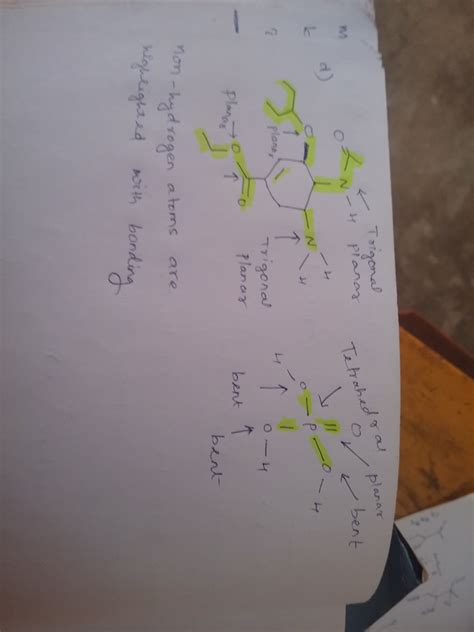 Trigonal
planar
Tetrahedral
planar
bent
m
O
N
H
O
d)
H
O
N
H
k
O
P
O
H
H
planar
Trigonal
planar
O
H
O
O
planar
bent
bent
non-hydrogen atoms are
highlighted with bonding